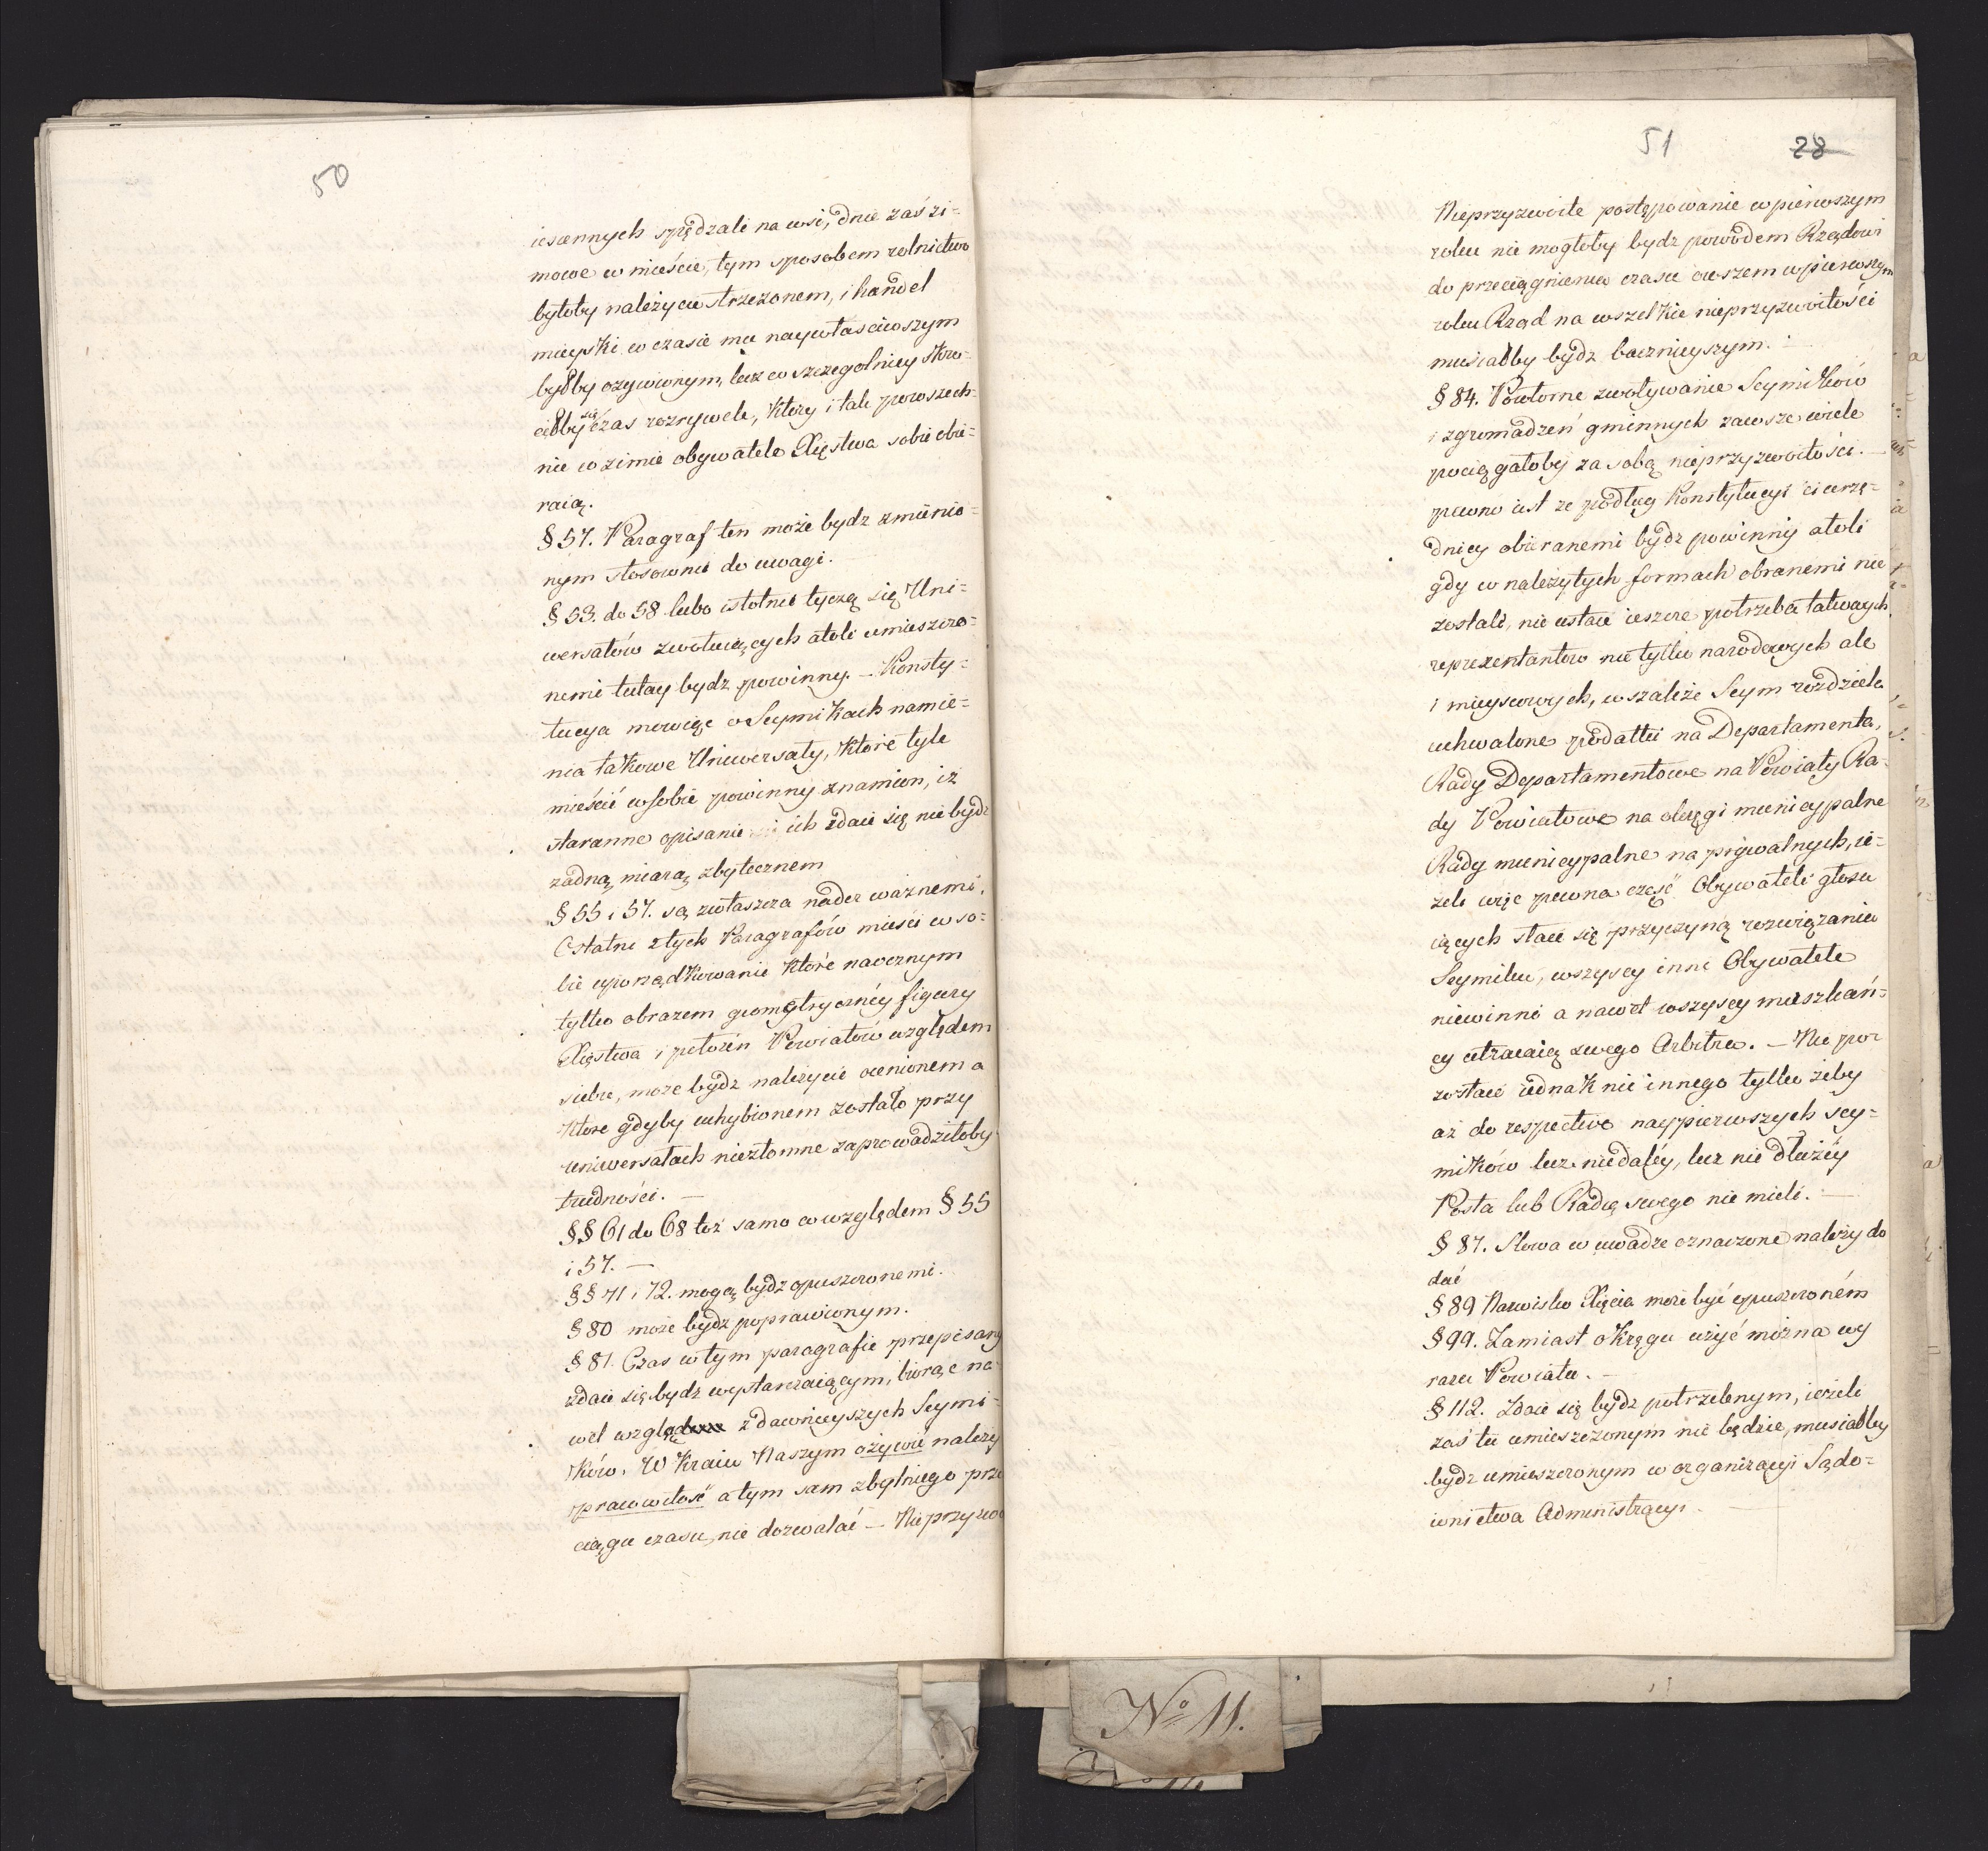 50
iesiennych spędzali na wsi, dnie zaś zi=
mowe w mieście, tym sposobem rolnictwo
byłoby należycie strzeżonem, i handel
mieyski w czasie mu naywłaściwszym
byłby ożywionym, lecz w szczegolniey skró-
ciłby się czas rozrywek, ktory i tak powszech-
nie w zimie obywatele Xięstwa sobie obie=
raią.
§ 57. Paragraf ten może bydz zmienio=
nym stosownie do uwagi.
§ 53. do 58 lubo istotnie tyczą się Uni=
wersałów zwołuiących atoli umieszczo=
nemi tutay bydz powinny. – Konsty=
tucya mowiąc o Seymikach namie=
nia takowe Uniwersały, które tyle
mieścić w sobie powinny znamion, iż
staranne opisanie ich zdaie się nie bydz
żadną miarą zbytecznem
§ 55 i 57. są zwłaszcza nader ważnemi.
Ostatni z tych Paragrafów mieści w so=
bie uporządkowanie które naocznym
tylko obrazem gieometryczney figury
Xięstwa i położeń Powiatów względem
siebie, może bydz należycie ocenionem a
które gdyby uchybionem zostało przy
uniwersałach niezłomne zaprowadziłoby
trudności. –
§§ 61 do 68 toż samo co względem § 55
i 57. –
§§ 71 i 72. mogą bydz opuszczonemi.
§ 80 może bydz poprawionym.
§ 81. Czas w tym paragrafie przepisany
zdaie się bydz wystarczaiącym, biorąc na
wet wzgląd z dawnieyszych Seymi=
ków. W Kraiu Naszym ożywić należy
prawowitość a tym sam zbytniego prze
ciągu czasu, nie dozwalać – Nieprzyzwo
51
28
Nieprzyzwoite postępowanie w pierwszym
roku nie mogłoby bydz powodem Rządowi
do przeciągnienia czasu owszem w pierwszym
roku Rząd na wszelkie nieprzyzwoitości
musiałby bydz bacznieyszym. –
§ 84. Powtorne zwoływanie Seymików
i zgromadzeń gminnych zawsze wiele
pociągałoby za sobą nieprzyzwoitości. –
pewno iest ze podług Konstytucyi ci urzę=
dnicy obieranemi bydz powinni atoli
gdy w należytych formach obranemi nie
zostali, nie ustaie ieszcze potrzeba takowych
reprezentantow nie tylko narodowych ale
i mieyscowych, wszakże Seym rozdziela
uchwalone podatki na Departamenta,
Rady Departamentowe na Powiaty Ra-
dy Powiatowe na okręgi municypalne
Rady municypalne na prywatnych, ie=
żeli więc pewna część Obywateli głosu
iących staie się przyczyną rozwiązania
Seymiku, wszyscy inni Obywatele
niewinni a nawet wszyscy mieszkań=
cy utracaią swego Arbitra. – Nie po
zostaie iednak nic innego tylko żeby
aż do respective naypierwszych sey=
mików lecz nie daléy, lecz nie dłużéy
Posła lub Radcę swego nie mieli. –
§ 87. Słowa w uwadze oznaczone należy do
dać
§ 89 Nazwisko Xięcia może być opuszczoném
§ 99. Zamiast okręgu użyć można wy
razu Powiatu. –
§ 112. Zdaie się bydz potrzebnym, ieżeli
zaś tu umieszczonym nie będzie, musiałby
bydz umieszczonym w organizacyi Sądo=
wnictwa Administracyi. –
No 11.